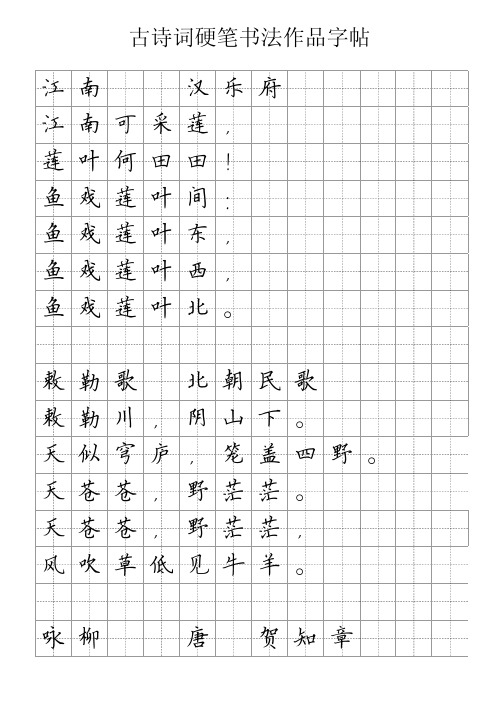 古诗词硬笔书法作品字帖
江南 汉乐府
江南可采莲，
莲叶何田田！
鱼戏莲叶间：
鱼戏莲叶东，
鱼戏莲叶西，
鱼戏莲叶北。
敕勒歌 北朝民歌
敕勒川，阴山下。
天似穹庐，笼盖四野。
天苍苍，野茫茫。
天苍苍，野茫茫，
风吹草低见牛羊。
咏柳 唐 贺知章